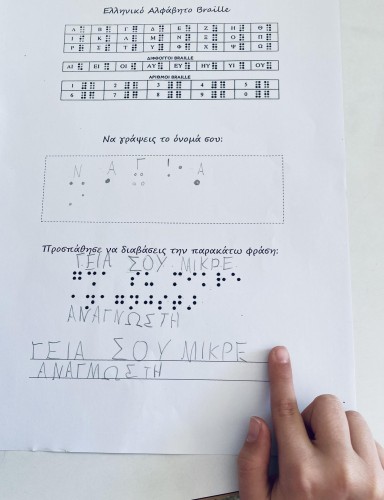 Ελληνικό Αλφάβητο Braille
Α Β Γ Δ Ε Ζ Η Θ
Ι Κ Λ Μ Ν Ξ Ο Π
Ρ Σ Τ Υ Φ Χ Ψ Ω
ΔΙΦΘΟΓΓΟΙ BRAILLE
ΑΙ ΕΙ ΟΙ ΑΥ ΕΥ ΗΥ ΥΙ ΟΥ
ΑΡΙΘΜΟΙ BRAILLE
1 2 3 4 5
6 7 8 9 0
Να γράψεις το όνομά σου:
Ν Α Γ Ι Α
Προσπάθησε να διαβάσεις την παρακάτω φράση:
ΓΕΙΑ ΣΟΥ ΜΙΚΡΕ
ΑΝΑΓΝΩΣΤΗ
ΓΕΙΑ ΣΟΥ ΜΙΚΡΕ
ΑΝΑΓΜΩΣΤΗ